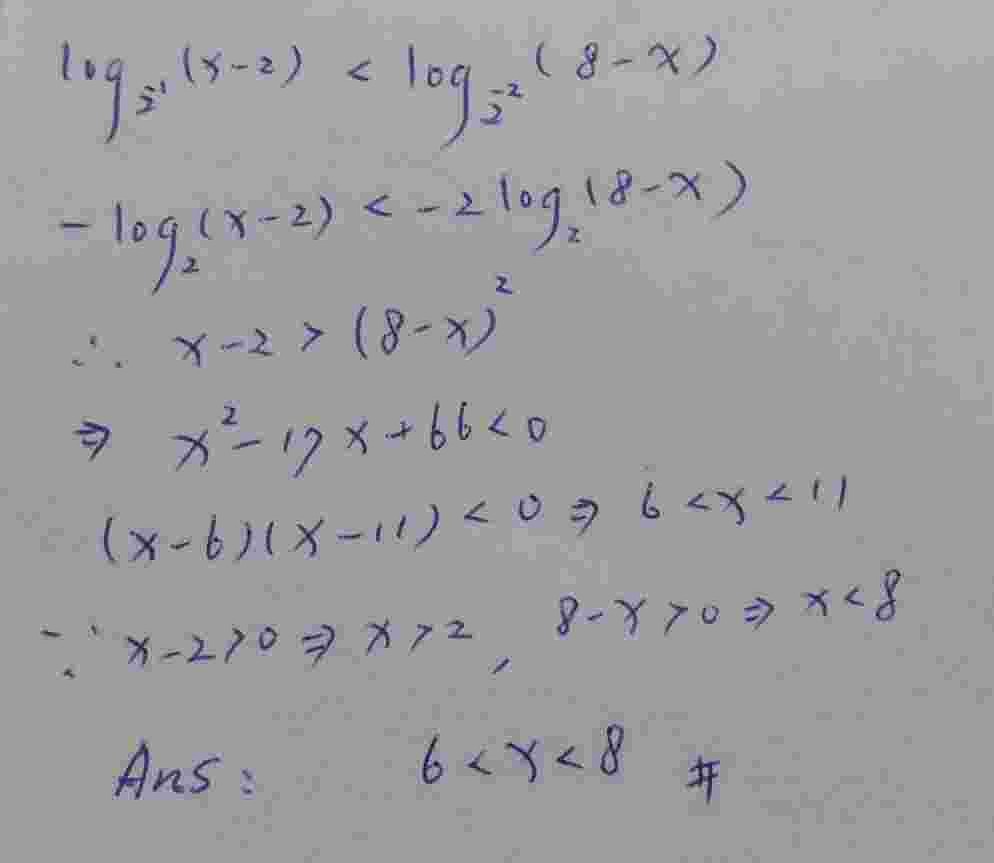 log₂⁻¹ (x-2) < log₂⁻² (8-x)
-log₂(x-2) < -2 log₂(8-x)
∴ x-2 > (8-x)²
⇒ x²-17x+66<0
(x-6)(x-11) < 0 ⇒ 6 < x < 11
∵ x-2>0 ⇒ x>2, 8-x>0 ⇒ x<8
Ans: 6 < x < 8 #